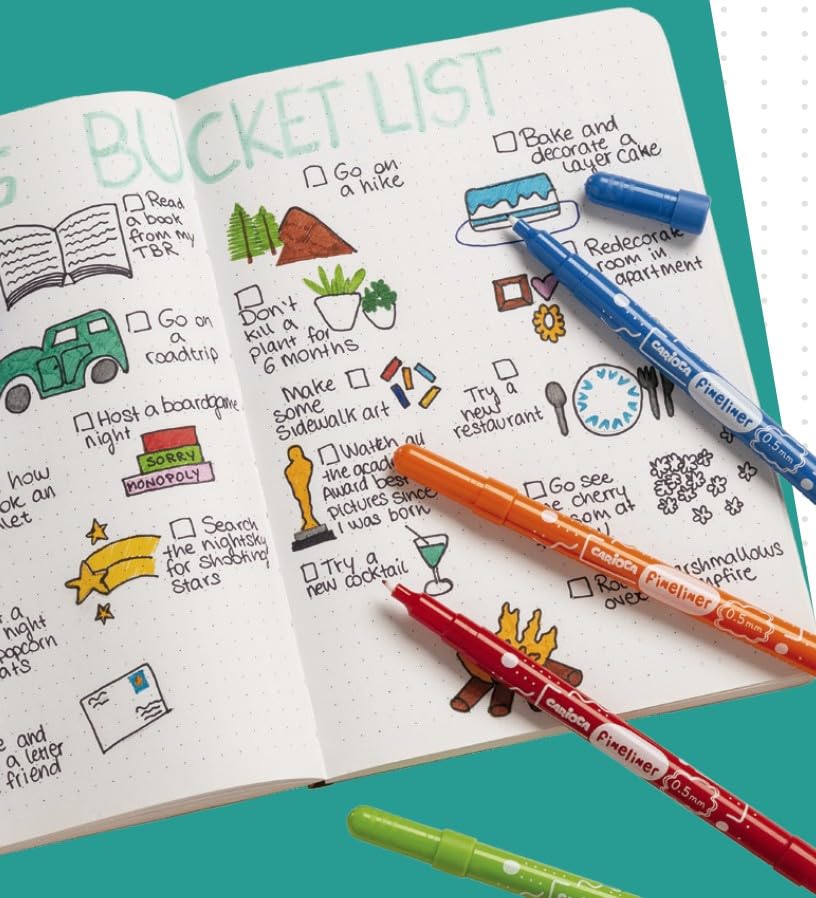 BUCKET LIST
Read
a book
from my
TBR
Go on
a
roadtrip
Host a boardgame
night
SORRY
MONOPOLY
how
an
Search
the nightsky
for shooting
stars
a
night
popcorn
and
a letter
friend
Go on
a hike
Don't
kill a
plant for
6 months
Make
some
sidewalk art
Watch
the
Award best
pictures since
I was born
Try a
new cocktail
Bake and
decorate a
layer cake
room in
apartment
Try a
new
restaurant
Go see
cherry
at
CARIOCA Fineliner 0.5mm
CARIOCA Fineliner 0.5mm
CARIOCA Fineliner 0.5mm